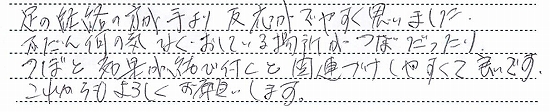 足の経絡の方が手より反応がでやすく思いました。
ふだん何の気なくおしている場所がつぼだったり
つぼと効果が結び付くと関連づけしやすくて良いです。
これからもよろしくお願いします。